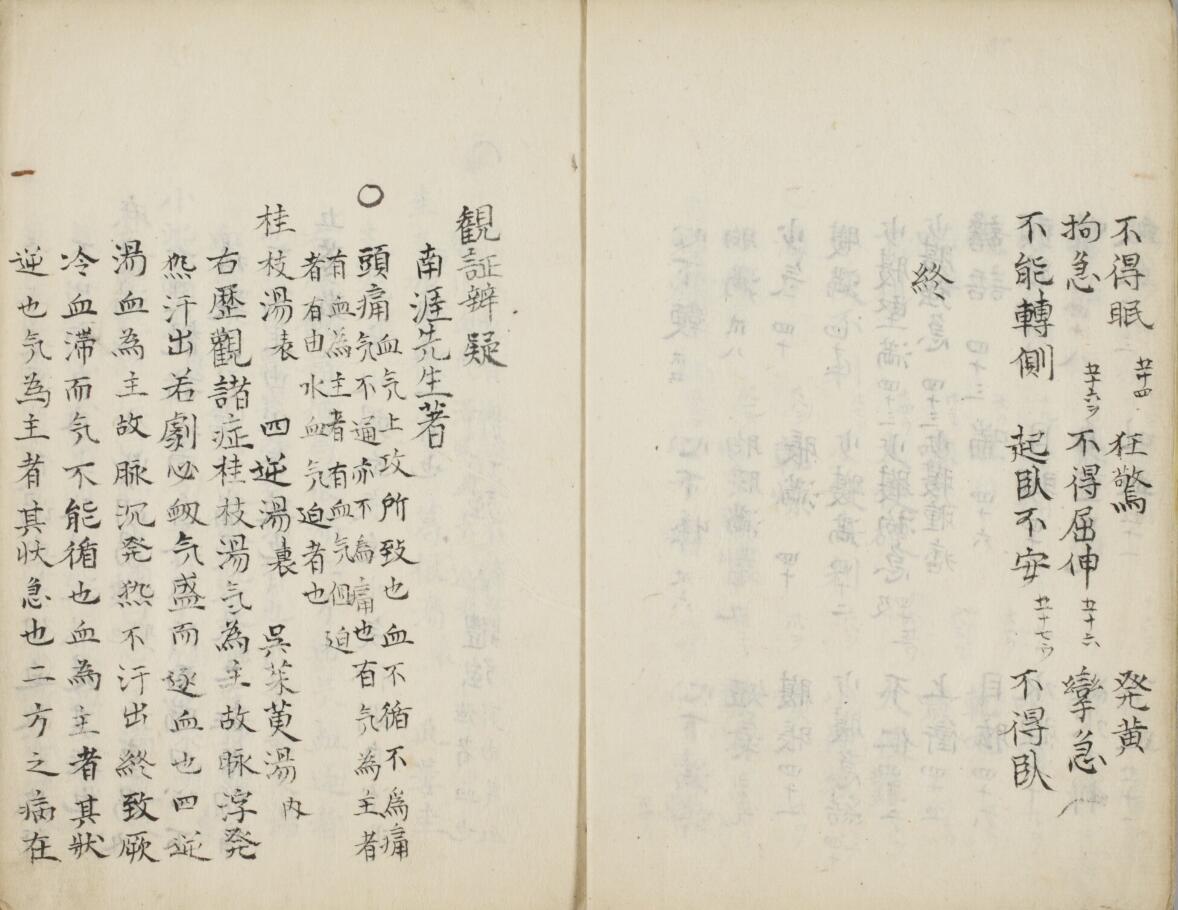 不得眠 五十四 狂驚 発黄
拘急 五十六ウ 不得屈伸 五十六 攣急
不能轉側 起臥不安 五十七ウ 不得臥
終
観証辨疑
南涯先生著
○頭痛 血気上攻所致也血不循不為痛
気不通亦不為痛也有気為主者
有血為主者有血気但迫
者有由水血気迫者也
桂枝湯表 四逆湯裏 呉茱萸湯内
右歴觀諸症桂枝湯気為主故脉浮発
热汗出若劇必衂气盛而逐血也四逆
湯血為主故脉沉発热不汗出終致厥
冷血滞而気不能循也血為主者其狀
逆也気為主者其狀急也二方之病在